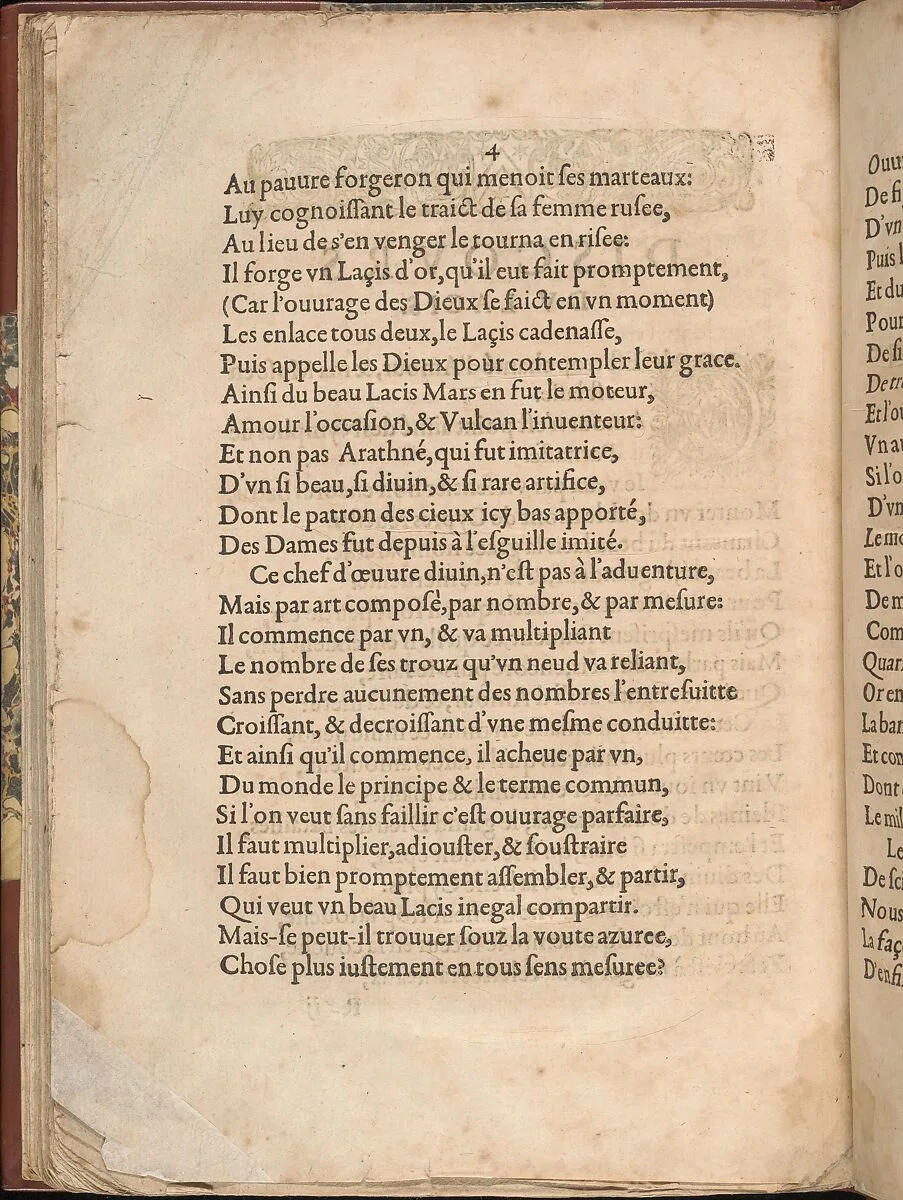 4
Au pauure forgeron qui menoit ſes marteaux:
Luy cognoiſſant le traict de ſa femme ruſee,
Au lieu de s'en venger le tourna en riſee:
Il forge vn Laçis d'or, qu'il eut fait promptement,
(Car l'ouurage des Dieux ſe faict en vn moment)
Les enlace tous deux, le Laçis cadenaſſe,
Puis appelle les Dieux pour contempler leur grace.
Ainſi du beau Lacis Mars en fut le moteur,
Amour l'occaſion, & Vulcan l'inuenteur:
Et non pas Arathné, qui fut imitatrice,
D'vn ſi beau, ſi diuin, & ſi rare artifice,
Dont le patron des cieux icy bas apporté,
Des Dames fut depuis à l'eſguille imité.
Ce chef d'œuure diuin, n'eſt pas à l'aduenture,
Mais par art compoſé, par nombre, & par meſure:
Il commence par vn, & va multipliant
Le nombre de ſes trouz qu'vn neud va reliant,
Sans perdre aucunement des nombres l'entreſuitte
Croiſſant, & decroiſſant d'vne meſme conduitte:
Et ainſi qu'il commence, il acheue par vn,
Du monde le principe & le terme commun,
Si l'on veut ſans faillir c'eſt ouurage parfaire,
Il faut multiplier, adiouſter, & ſouſtraire
Il faut bien promptement aſſembler, & partir,
Qui veut vn beau Lacis inegal compartir.
Mais-ſe peut-il trouuer ſouz la voute azuree,
Choſe plus iuſtement en tous ſens meſuree?
De
D'vn
Puis
Et du
Pour
De
Et
Vn
Si
D'vn
Et
De
Com
Or en
La
Et
Dont
Le
Le
De
Nous
La